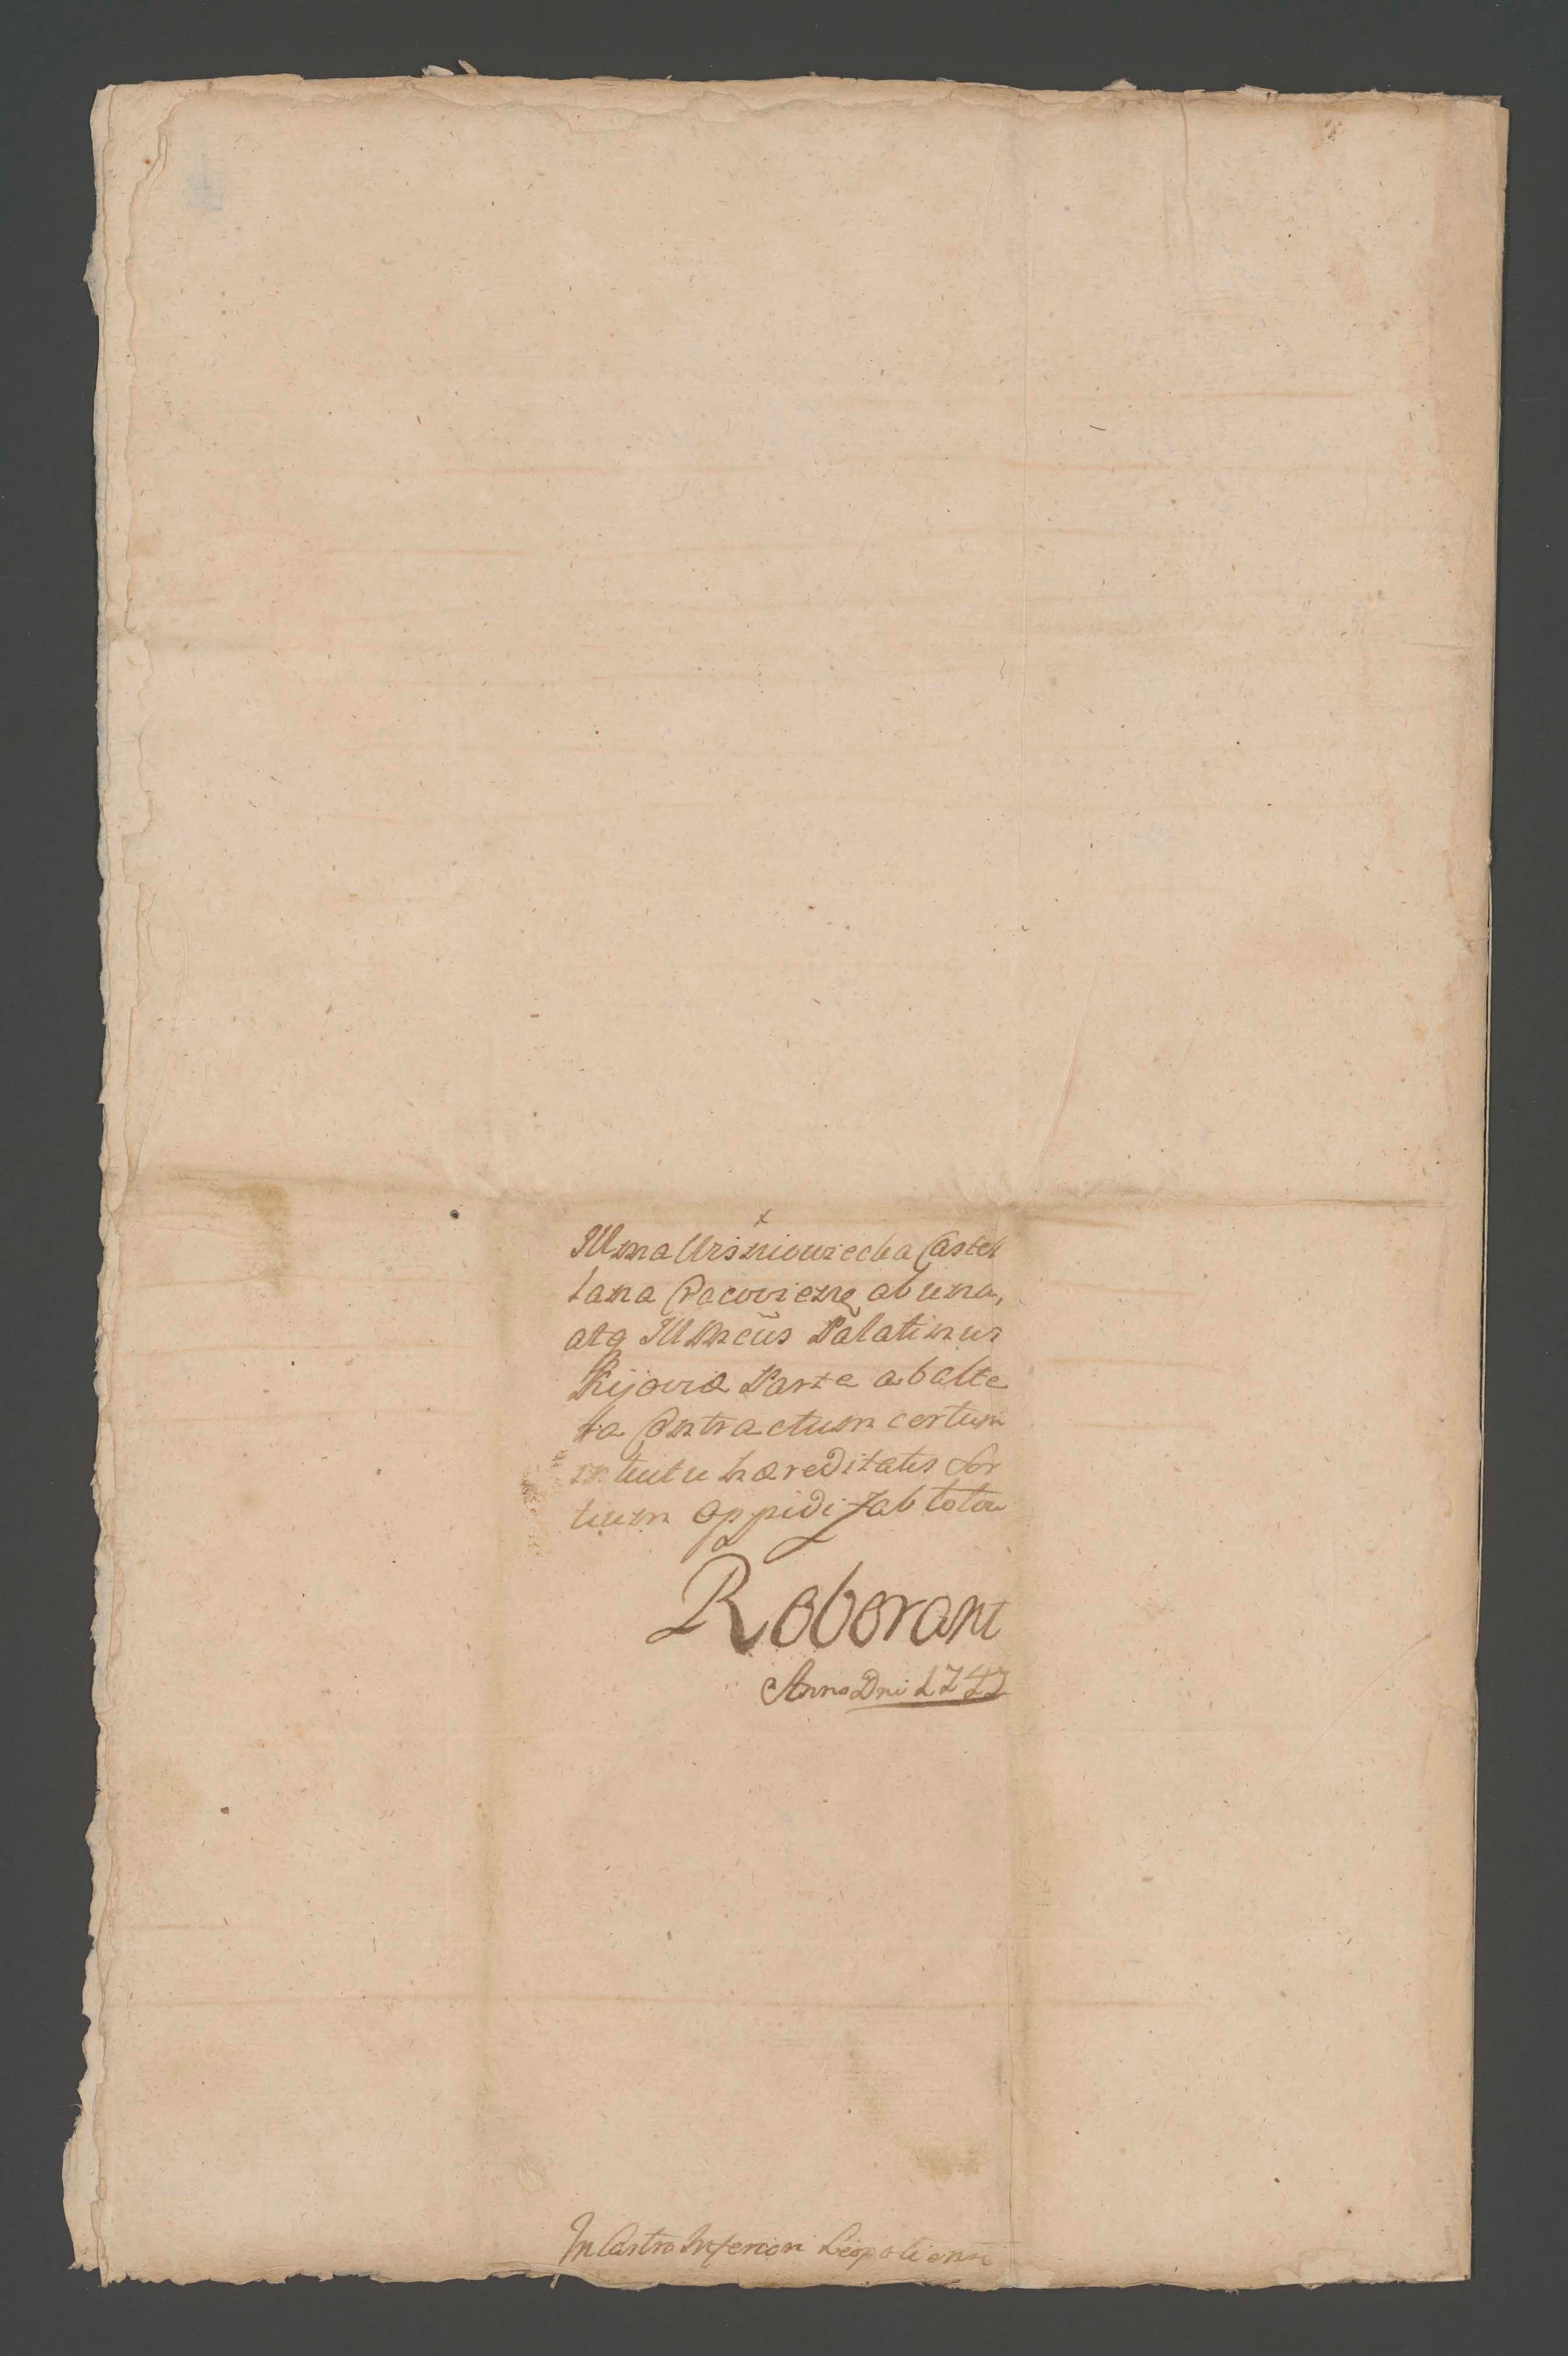 Illma Wiśniowiecka Castel
lana Cracovien̄ę ab una,
atq Illmcūs Palatinus
Kijoviæ Parte ab alte
ra Contractum certum
intuitu hæreditatis Sor
tium oppidi Jabłotow
Roborant
Anno Dni 1747
In Castro Inferiori Leopoliensi